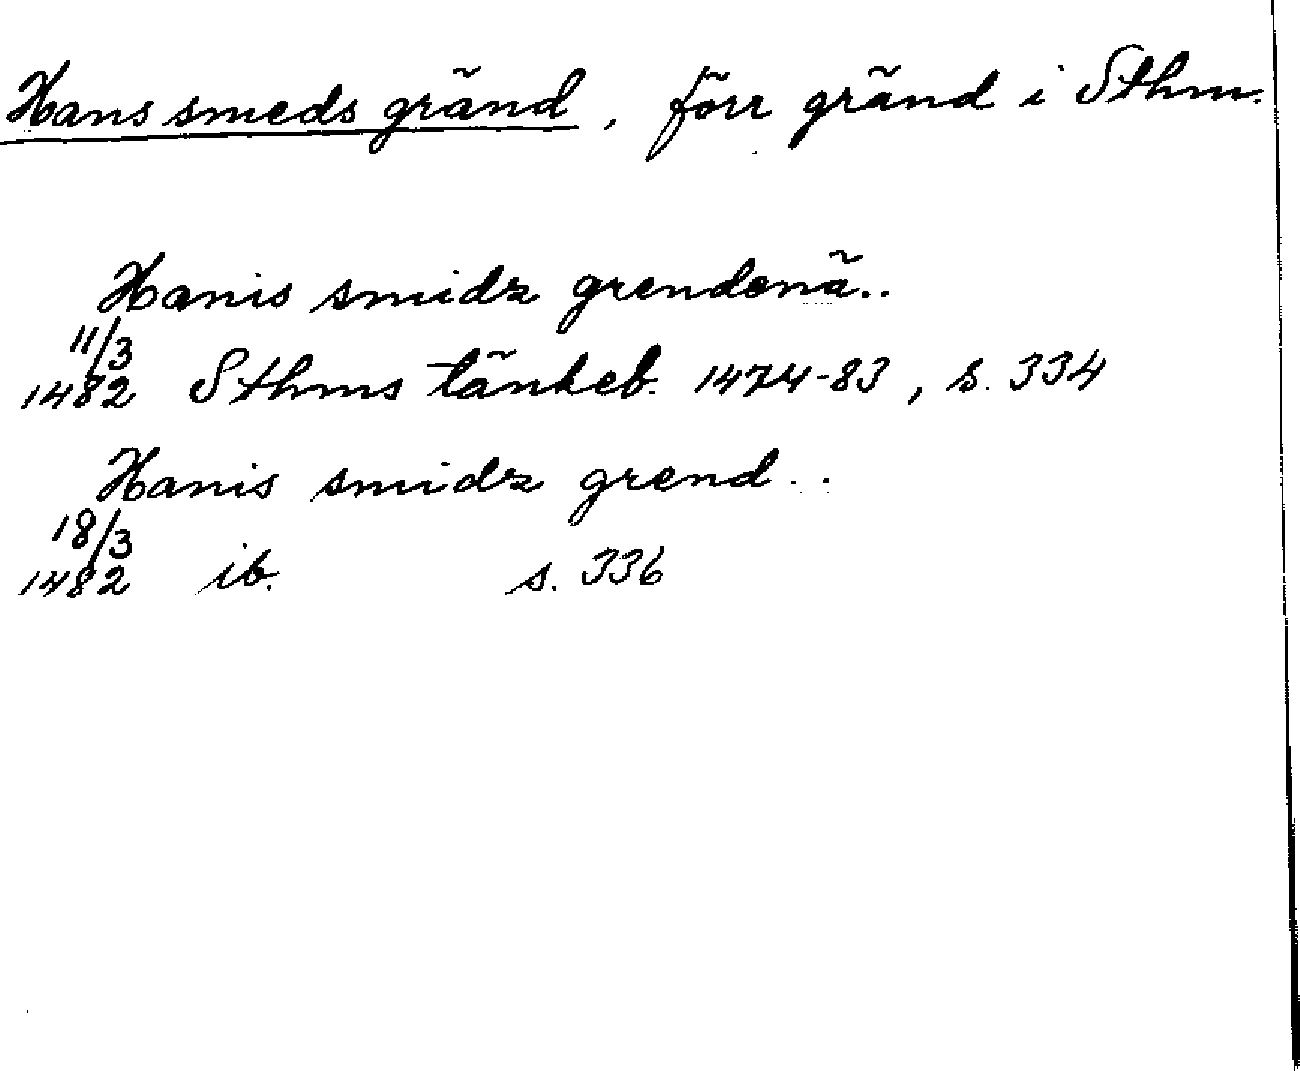 Hans smeds gränd, förr gränd i Sthm.
Hanis smidz grendenä..
11/3
1482 Sthms tänkeb. 1474-83, s. 334
Hanis smidz grend..
18/3
1482 ib. s. 336